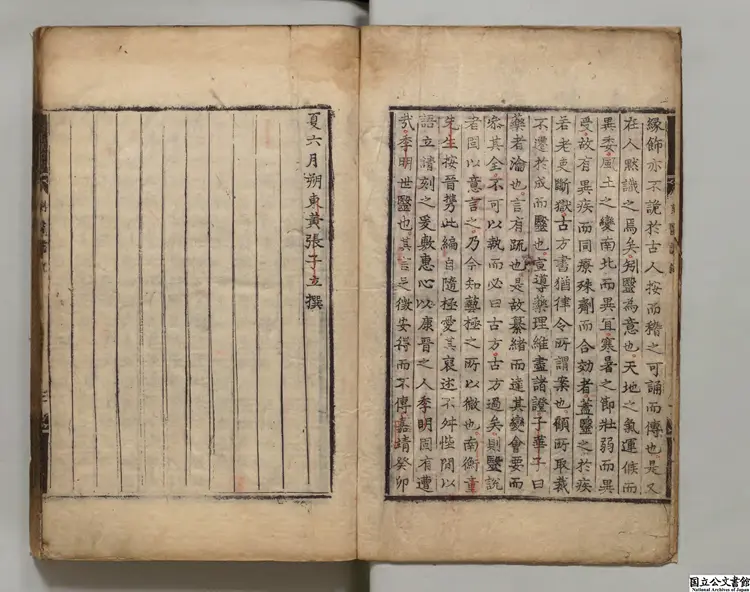 緣飾亦不詭於古人按而稽之可誦而傳也是又
在人黙識之焉矣矧醫為意也天地之氣運候而
異委風土之變南北而異冝寒暑之節壯弱而異
受故有異疾而同療殊劑而合効者蓋醫之於疾
若老吏斷獄古方書猶律令所謂案也顧所取裁
不遷於成而醫也宣導藥理維盡諸證子華子曰
藥者瀹也言有疏也是故纂緒而達其變會要而
㝡其全不可以執而必曰古方古方過矣則醫說
者固以意言之乃今知藝極之所以徵也南衡童
先生按晉㔟此編自隨極愛其裒述不舛惟間以
語立請刻之爰敷惠心以康晉之人李明固有遭
㢤李明世醫也其言足徵安得而不傳嘉靖癸卯
夏六月朔東黃張子立撰
国立公文書館
National Archives of Japan